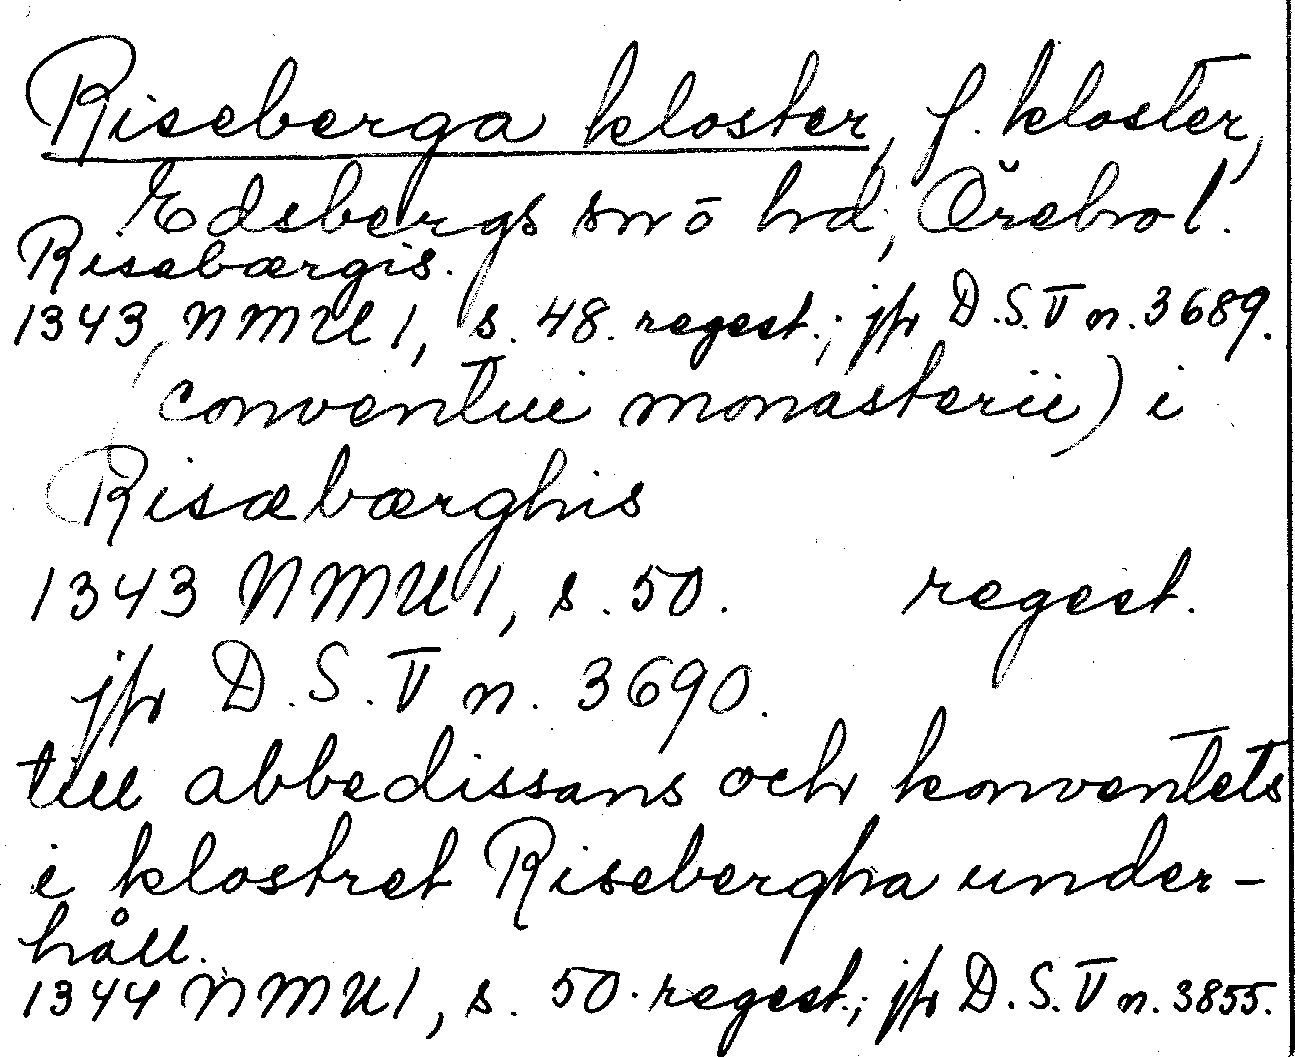 Riseberga kloster, f. kloster,
Edsbergs sn ö hd, Örebro l.
Risebærgis.
1343 NMU 1, s. 48. regest.; jfr D.S. V n. 3689.
(conventui monasterii) i
Risæbærghis
1343 NMU 1, s. 50. regest.
jfr D.S. V n. 3690.
till abbedissans och konventets
i klostret Risebergha under-
håll.
1344 NMU 1, s. 50. regest.; jfr D.S. V n. 3855.